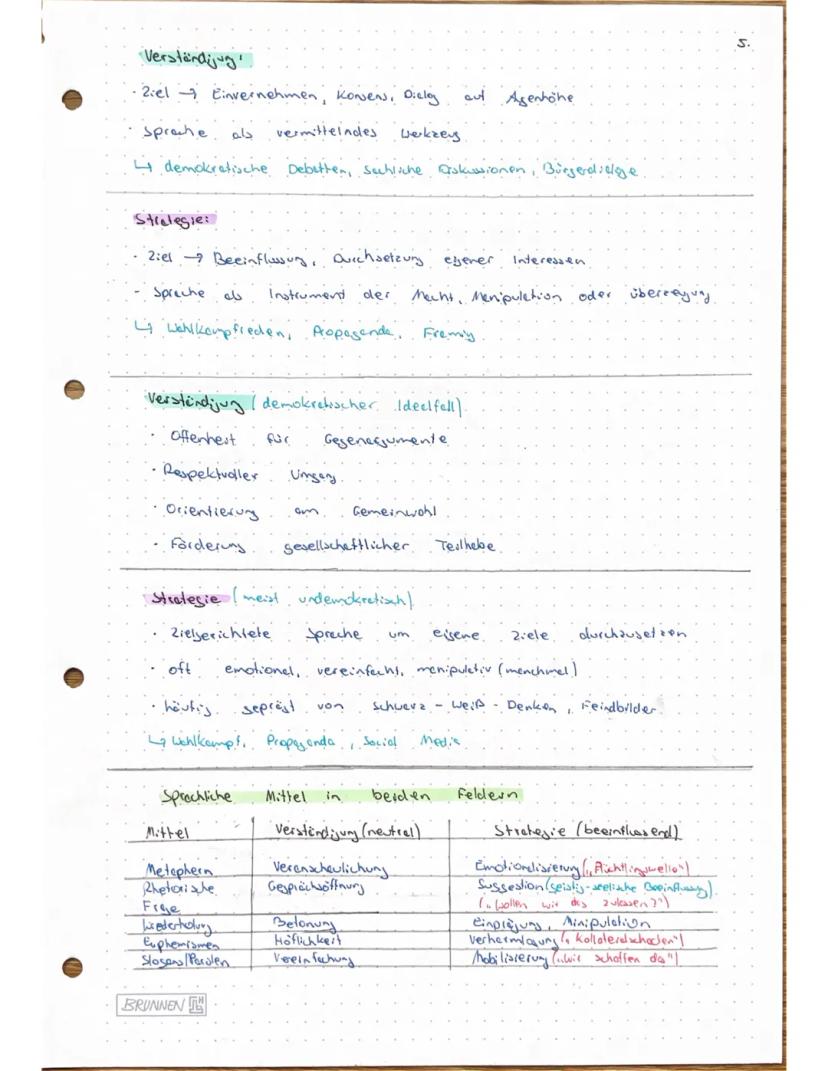 5.
Verständigung:
· Ziel → Einvernehmen, Konsens, Dialog auf Augenhöhe
· Sprache als vermittelndes Werkzeug
↳ demokratische Debatten, sachliche Diskussionen, Bürgerdialoge
Strategie:
· Ziel → Beeinflussung, Durchsetzung eigener Interessen
- Sprache als Instrument der Macht, Manipulation oder überzeugung
↳ Wahlkampfreden, Propaganda, Framing
Verständigung (demokratischer Idealfall)
· Offenheit für Gegenargumente
· Respektvoller Umgang
· Orientierung am Gemeinwohl
· Förderung gesellschaftlicher Teilhabe
Strategie (meist undemokratisch)
· Zielgerichtete Sprache um eigene Ziele durchzusetzen
· oft emotional, vereinfacht, manipulativ (manchmal)
· häufig geprägt von Schwarz-Weiß-Denken, Feindbilder
↳ Wahlkampf, Propaganda, Social Media
Sprachliche Mittel in beiden Feldern
Mittel Verständigung (neutral) Strategie (beeinflussend)
Metaphern Veranschaulichung Emotionalisierung („Flüchtlingswelle")
Rhetorische Gesprächsöffnung Suggestion (geistig-seelische Beeinflussung)
Frage („Wollen wir das zulassen?")
Wiederholung Betonung Einprägung, Manipulation
Euphemismen Höflichkeit Verharmlosung („Kollateralschaden")
Slogans/Parolen Vereinfachung Mobilisierung („Wir schaffen das")
BRUNNEN